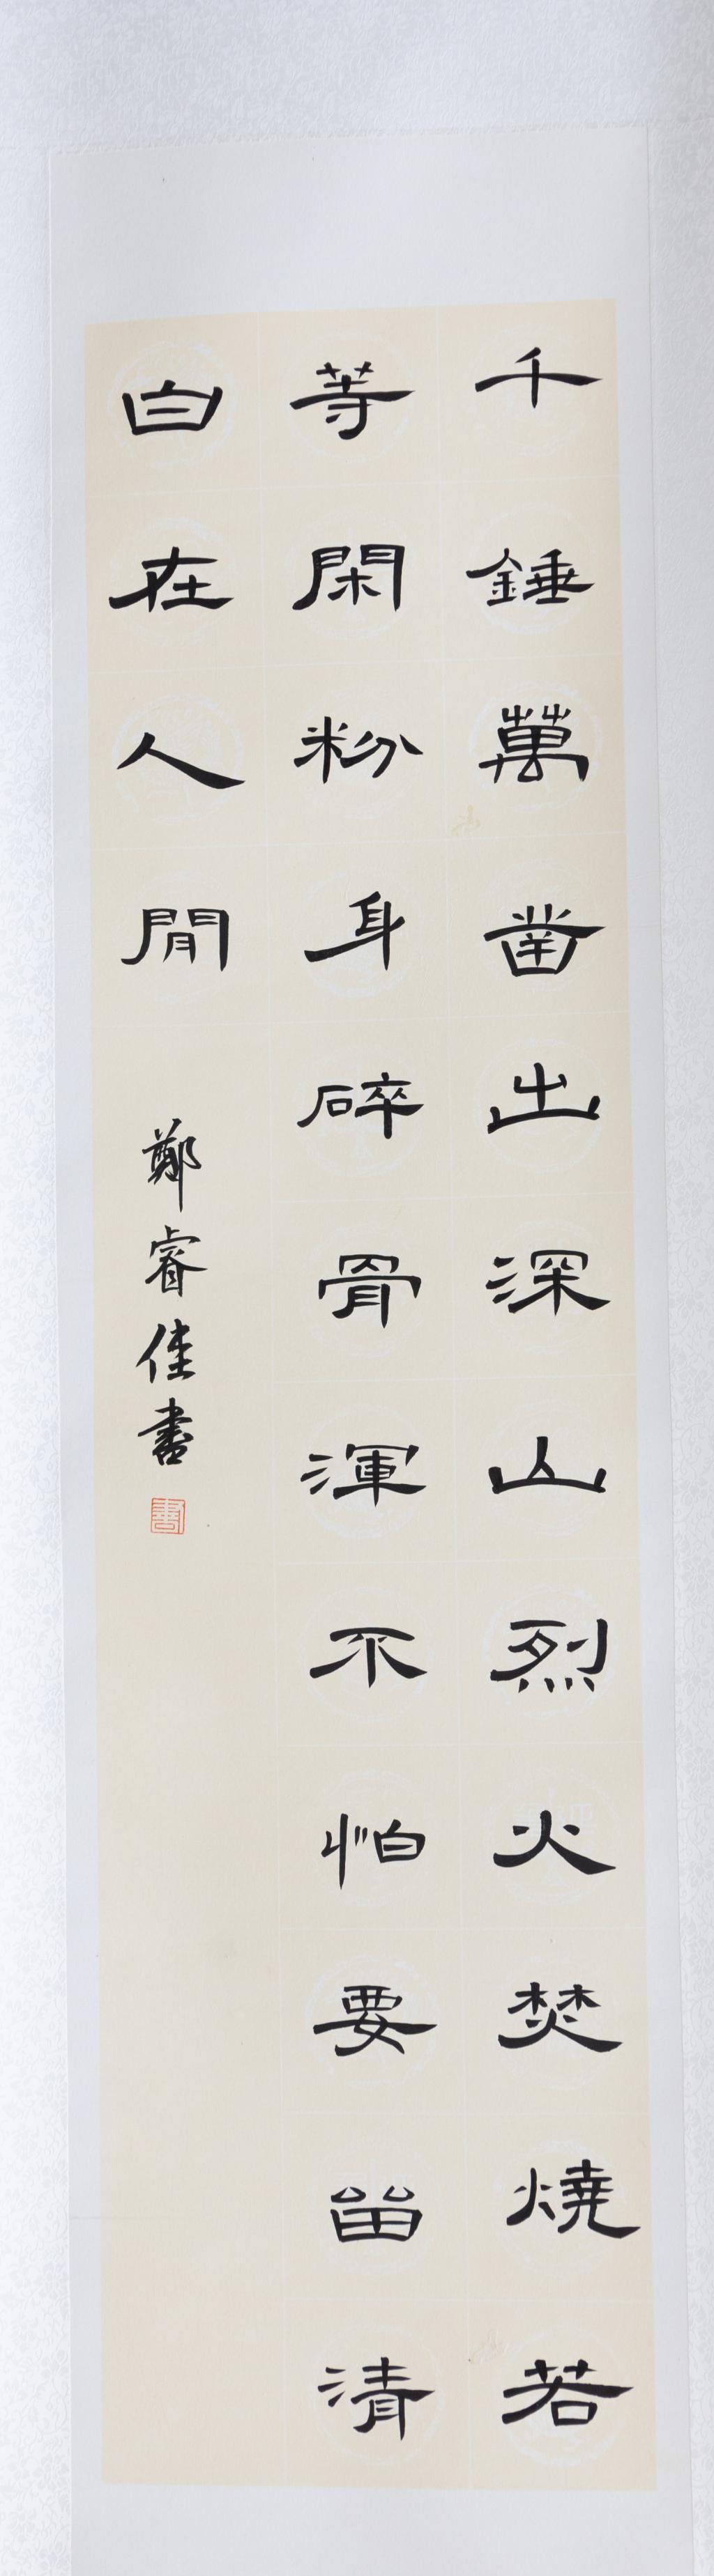 千錘萬凿出深山烈火焚燒若
等閑粉身碎骨渾不怕要畱清
白在人間
鄭睿佳書
書